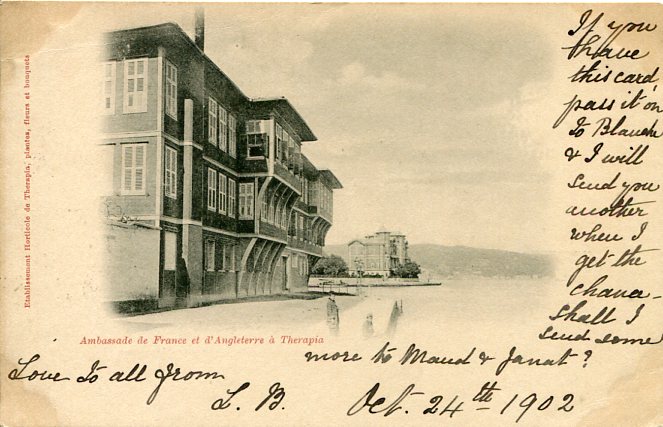 Etablissement Horticole de Therapia, plantes, fleurs et bouquets
If you
have
this card
pass it on
to Blanche
& I will
send you
another
when I
get the
chance
shall I
send some
more to Maud & Janat?
Ambassade de France et d'Angleterre à Therapia
Love to all from
L. B.
Oct. 24th 1902